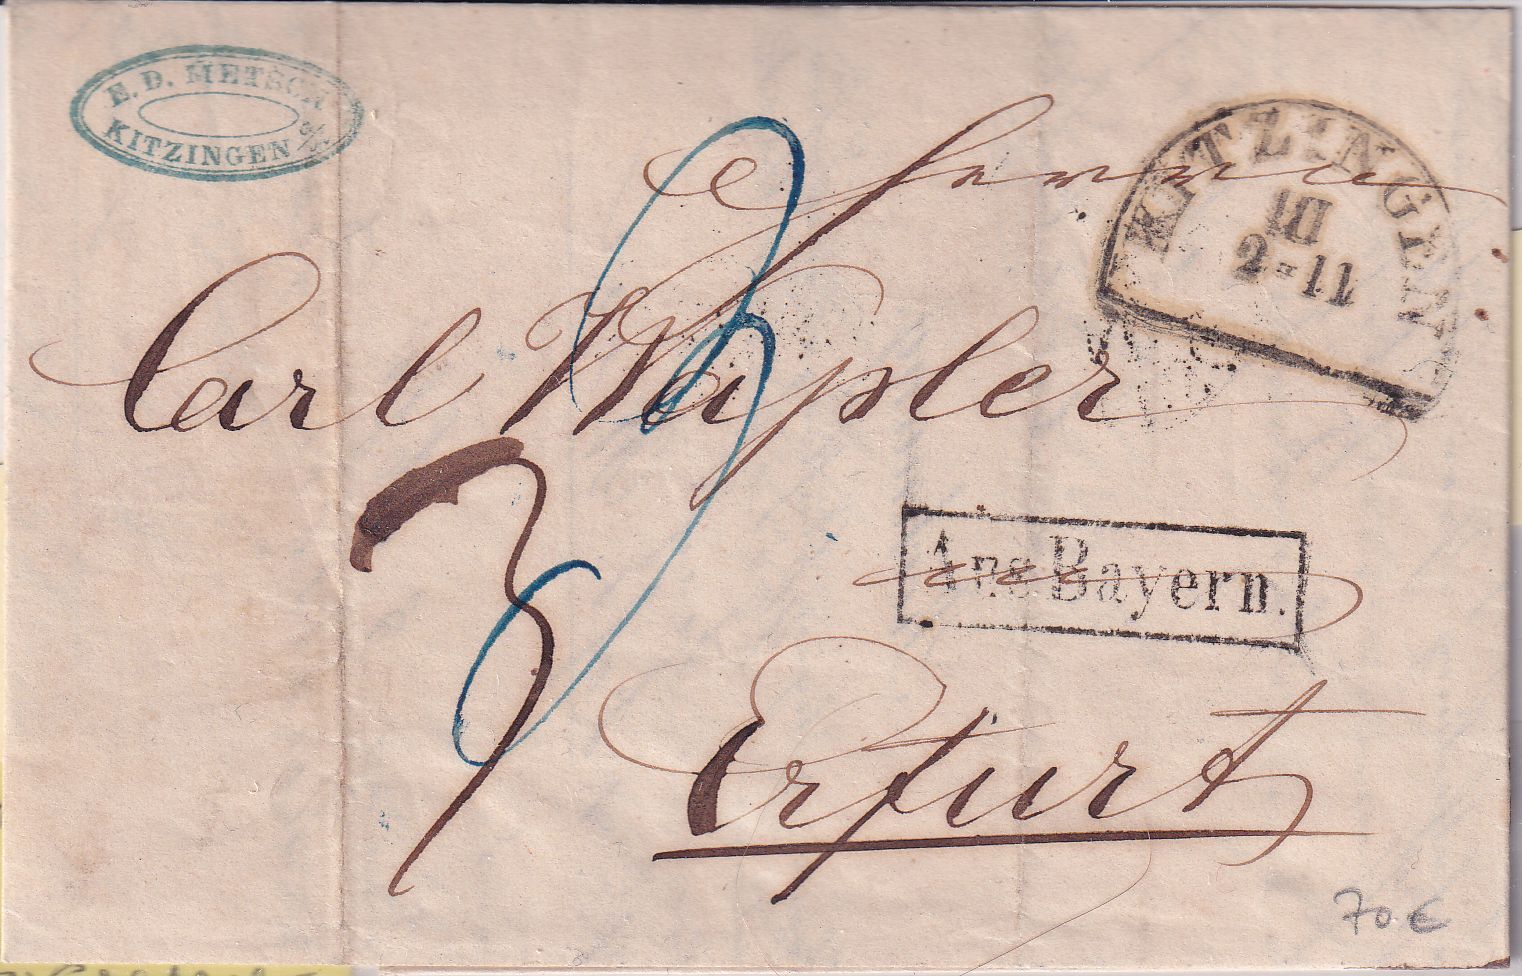 E. D. METSCH
KITZINGEN a/M.
KITZINGEN
III
2-11
Herrn
Carl Wapler
3
Aus Bayern.
Erfurt
70 €